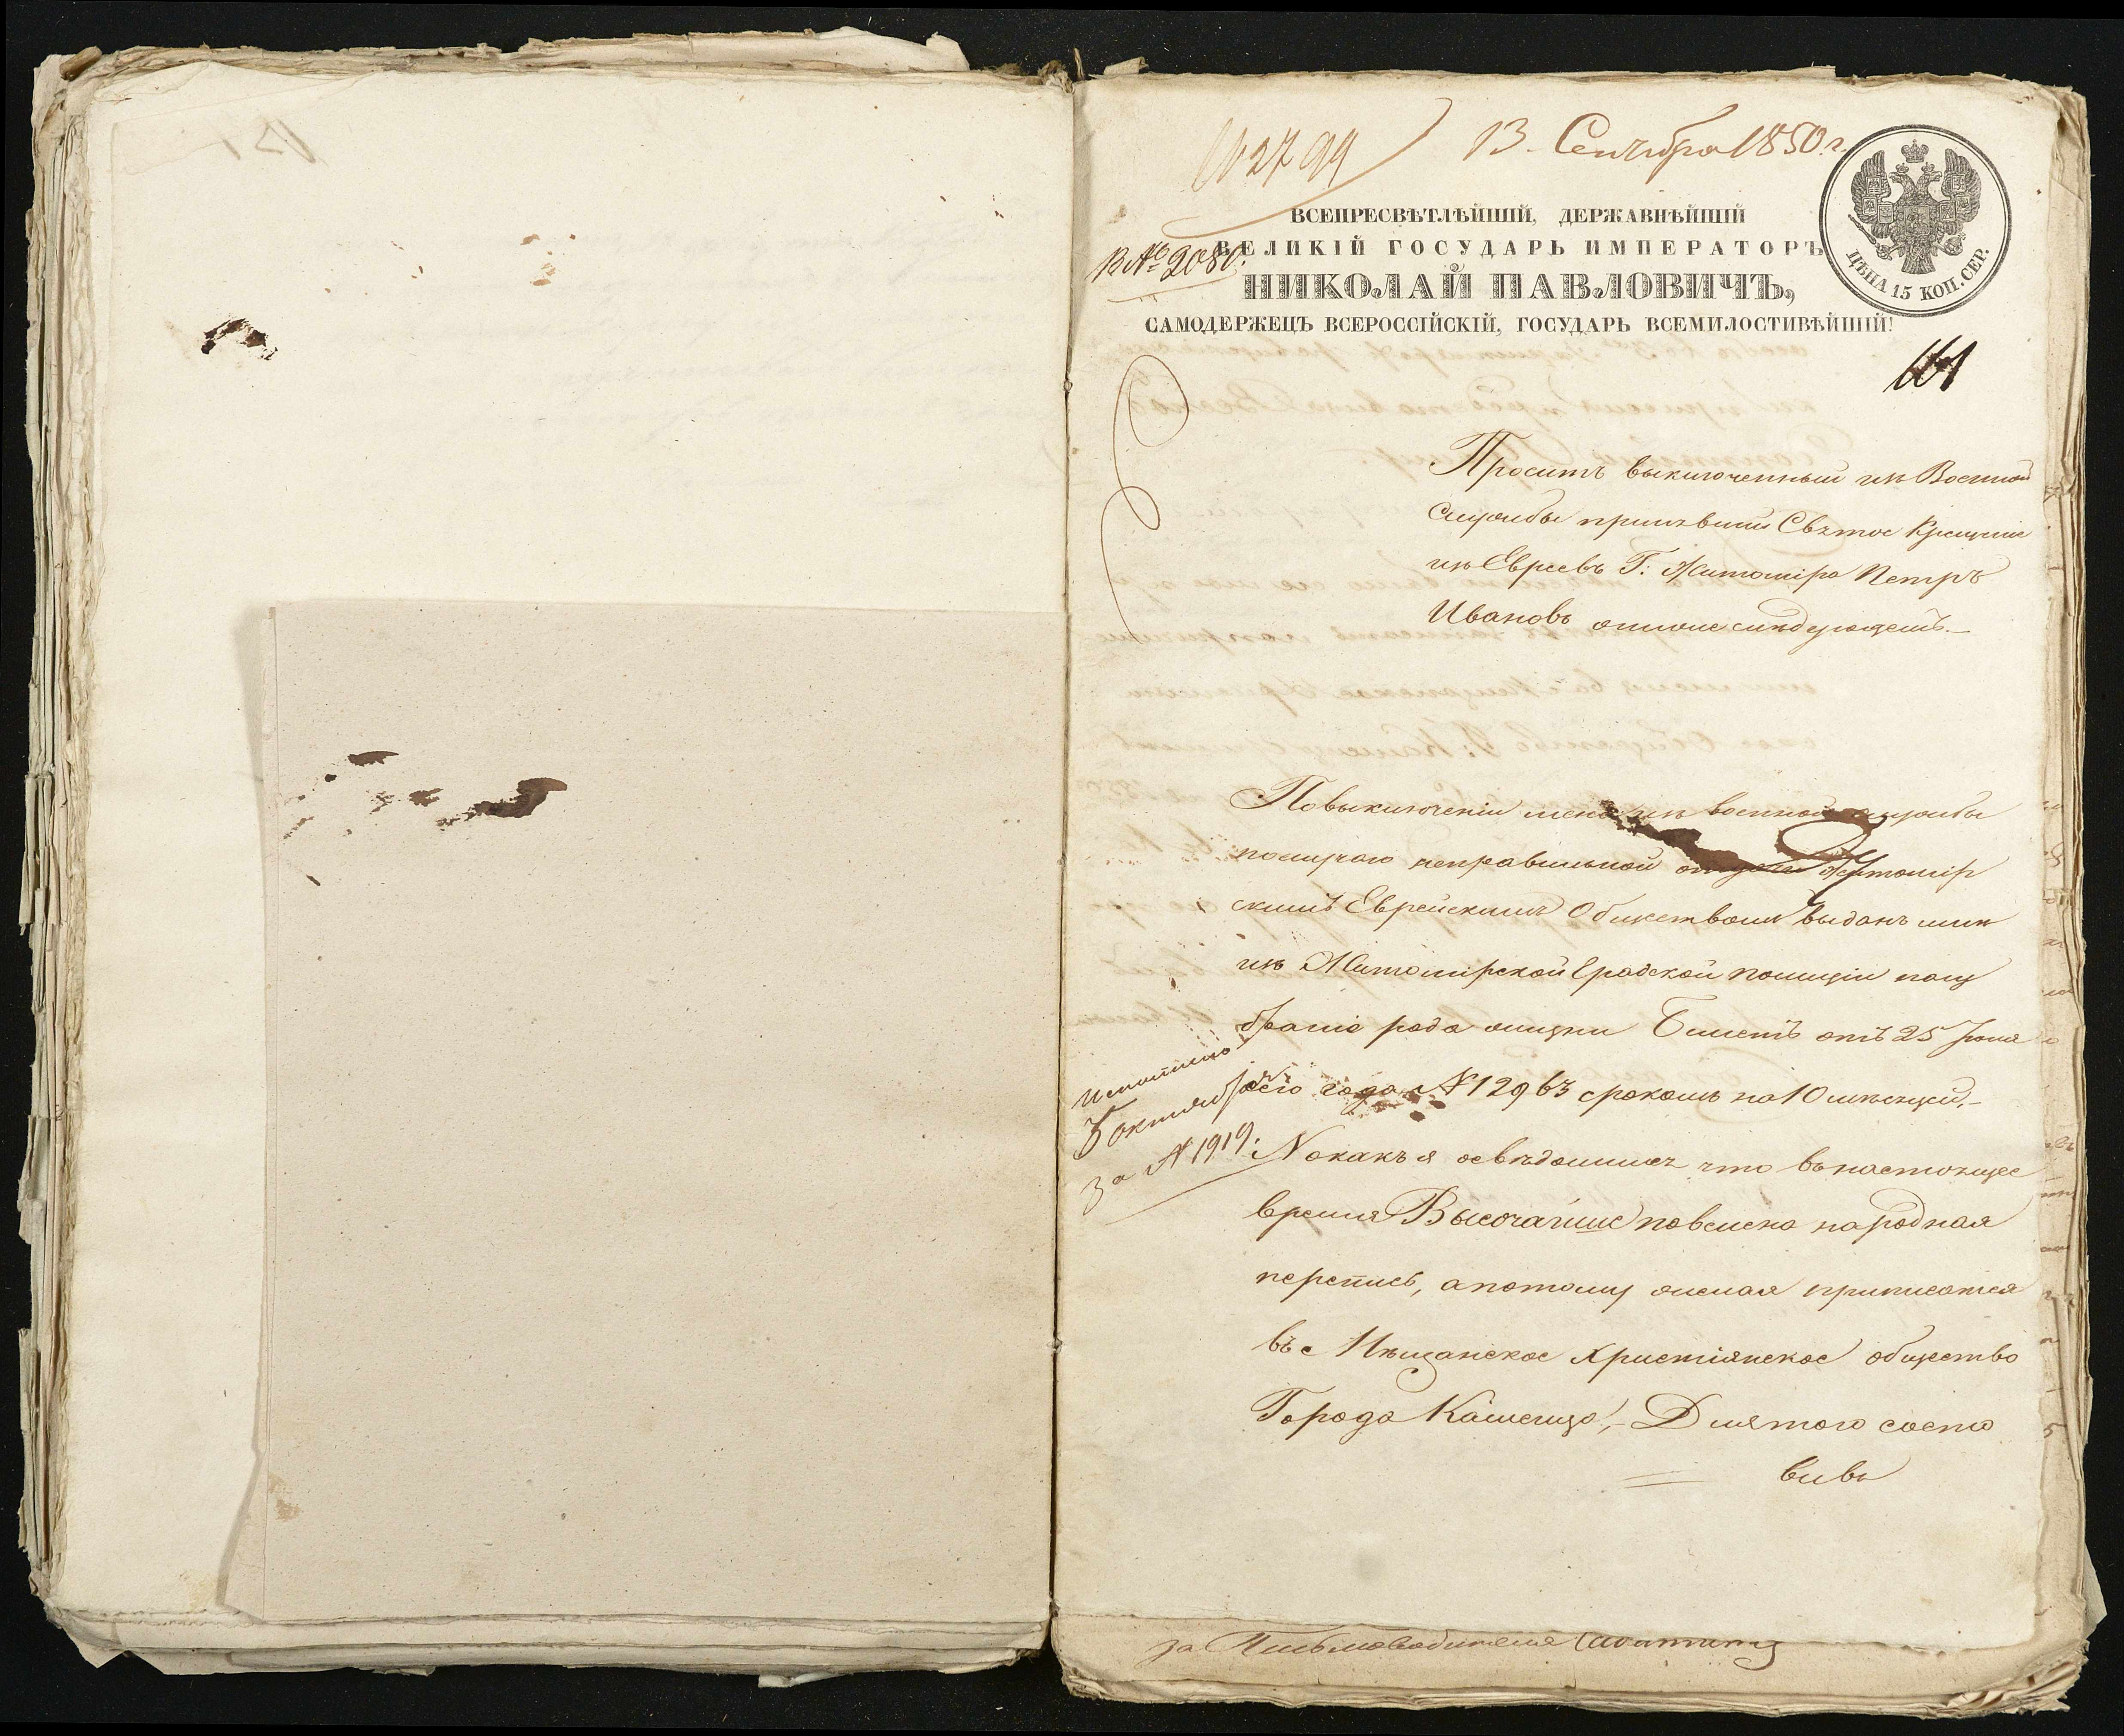 № 2799
13. Сентября 1850 г.
ВСЕПРЕСВѢТЛѢЙШІЙ, ДЕРЖАВНѢЙШІЙ
ВЕЛИКІЙ ГОСУДАРЬ ИМПЕРАТОРЪ
НИКОЛАЙ ПАВЛОВИЧЪ,
САМОДЕРЖЕЦЪ ВСЕРОССІЙСКІЙ, ГОСУДАРЬ ВСЕМИЛОСТИВѢЙШІЙ!
ЦѢНА 15 КОП. СЕР.
В № 2080.
161
Проситъ выключенный изъ Военной
Службы принявшій Святое Крещеніе
изъ Евреевъ Г: Житоміра Петръ
Ивановъ о слѣдующемъ.
По выключеніи меня изъ военной службы
по случаю неправильной отдачи Житомір
скимъ Еврейскимъ Обществомъ выданъ мнѣ
изъ Житомірской Градской полиціи
рода жизни Билетъ отъ 25 Іюня
сего года № 12963 срокомъ на 10 мѣсяцей.
Но какъ я освѣдомился что въ настоящее
время Высочайше повелена народная
перепись, а потому желая приписатся
въ Мѣщанское христіянское общество
Города Каменца, Для того соста
вивъ
Исполнено
Октября
за № 1919.
за Письмоводителя